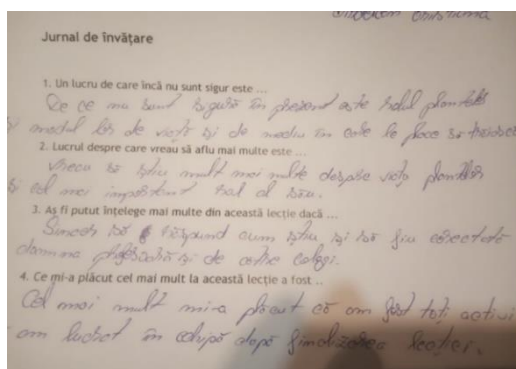 Jurnal de învățare
1. Un lucru de care încă nu sunt sigur este ...
De ce nu sunt sigură în prezent este rolul plantelor
și modul lor de viață și de mediu în care le place să trăiască
2. Lucrul despre care vreau să aflu mai multe este ...
Vreau să știu mult mai multe despre viața plantelor
și cel mai important rol al său.
3. Aș fi putut înțelege mai multe din această lecție dacă ...
să răspund cum știu și să fiu corectată
doamna profesoară și de către colegi.
4. Ce mi-a plăcut cel mai mult la această lecție a fost ..
Cel mai mult mi-a plăcut că am fost toți activi
am lucrat în echipă după finalizarea lecției.